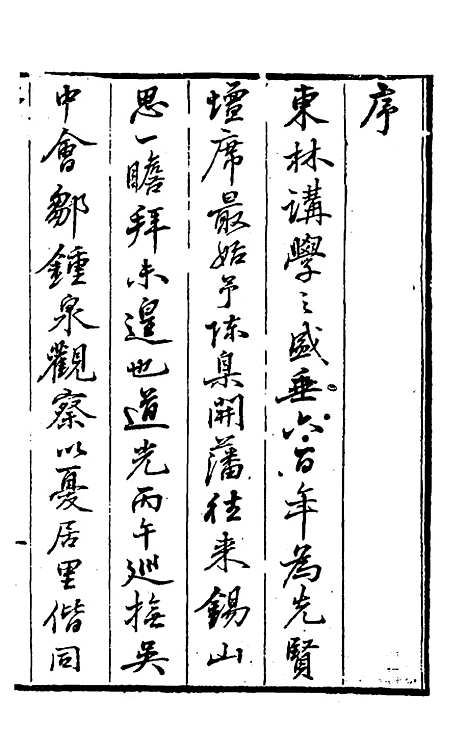 序
東林講學之盛垂六百年為先賢
壇席最始予陳臬開藩往来錫山
思一瞻拜未遑也道光丙午巡撫吳
中會鄒鍾泉觀察以憂居里偕同